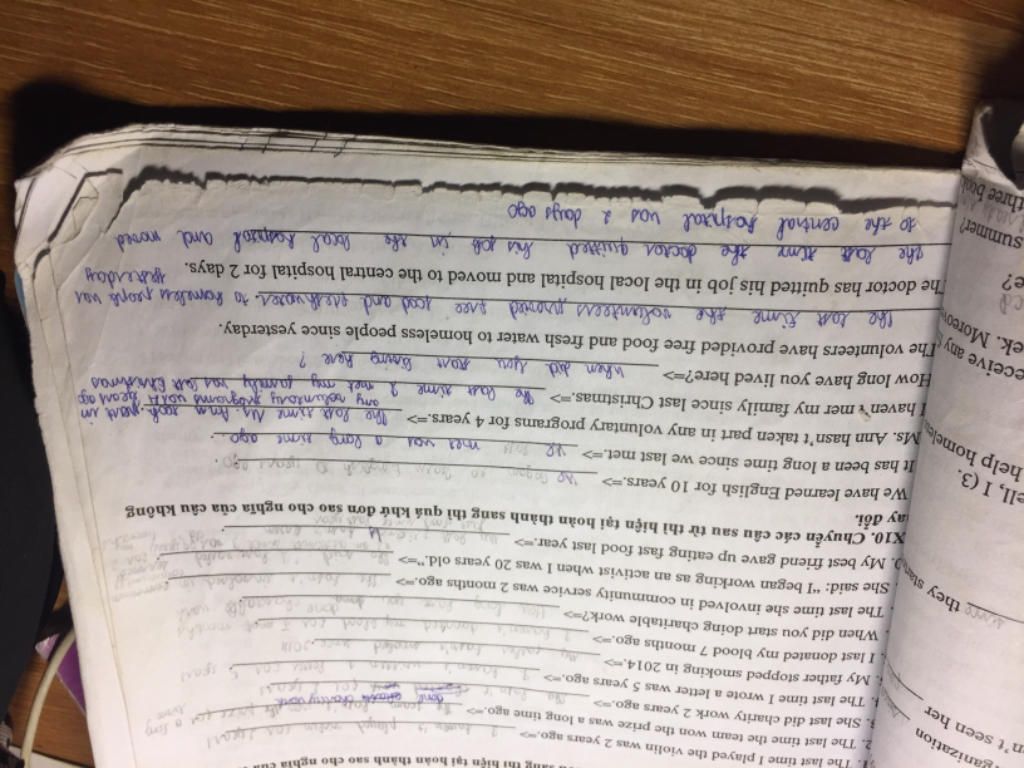 sang thì hiện tại hoàn thành sao cho nghĩa của
1. The last time I played the violin was 2 years ago.=> I haven't played the violin for 2 years
2. The last time the team won the prize was a long time ago.=> The team hasn't the prize for a long time
3. She last did charity work 2 years ago.=> She hasn't done charity work for 2 years
4. The last time I wrote a letter was 5 years ago.=> I haven't written a letter for 5 years
My father stopped smoking in 2014.=> My father hasn't smoked since 2014
I last donated my blood 7 months ago.=> I haven't donated my blood for 7 months
When did you start doing charitable work?=> How long have you done charitable work
The last time she involved in community service was 2 months ago.=> She hasn't involved in community service for 2
She said: "I began working as an activist when I was 20 years old."=>
My best friend gave up eating fast food last year.=> My best friend hasn't eaten
fast food since last year
X10. Chuyển các câu sau từ thì hiện tại hoàn thành sang thì quá khứ đơn sao cho nghĩa của câu không
đổi.
We have learned English for 10 years.=> We began to learn English 10 years ago.
It has been a long time since we last met.=> We met was a long time ago.
Ms. Ann hasn't taken part in any voluntary programs for 4 years.=> The last time Ms. Ann took part in
any voluntary programs was 4 years ago
I haven't mer my family since last Christmas.=> The last time I met my family was last Christmas
How long have you lived here?=> When did you start living here ?
The volunteers have provided free food and fresh water to homeless people since yesterday.
The last time the volunteers provided free food and fresh water to homeless people was
yesterday
The doctor has quitted his job in the local hospital and moved to the central hospital for 2 days.
The last time the doctor quitted his job in the local hospital and moved
to the central hospital was 2 days ago
rganization
n't seen her
they stay
ell, I (3.
help homeless
receive any
ek. Moreov
e?
summer?
three